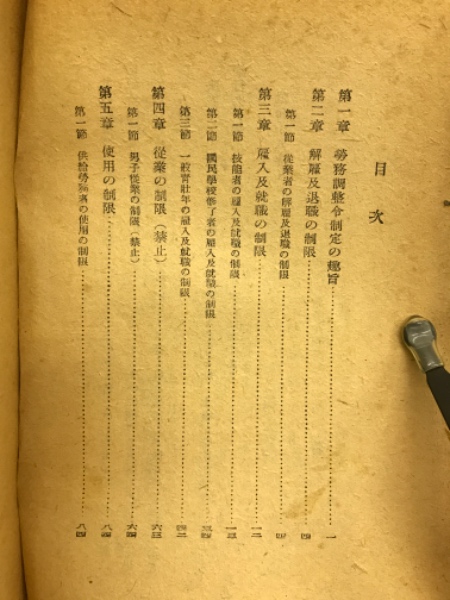 目次
第一章 勞務調整令制定の趣旨……一
第二章 解雇及退職の制限……四
第一節 從業者の解雇及退職の制限……四
第三章 雇入及就職の制限……一二
第一節 技能者の雇入及就職の制限……一三
第二節 國民學校修了者の雇入及就職の制限……三四
第三節 一般靑壯年の雇入及就職の制限……四二
第四章 從業の制限（禁止）……六三
第一節 男子從業の制限（禁止）……六四
第五章 使用の制限……八四
第一節 供給勞務者の使用の制限……八四